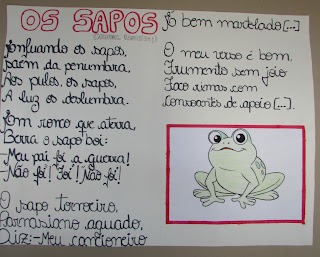 OS SAPOS
(MANUEL BANDEIRA)
Enfunando os sapos,
Saem da penumbra,
Aos pulos, os sapos,
A luz os deslumbra.
Em ronco que aterra,
Berra o sapo boi:
-Meu pai foi à guerra!
-Não foi! Foi! Não foi!
O sapo tanoeiro,
Parnasiano aguado,
Diz:-Meu cancioneiro
É bem martelado [...]
O meu verso é bom
Frumento sem joio
Faço rimas com
Consoantes de apoio [...].